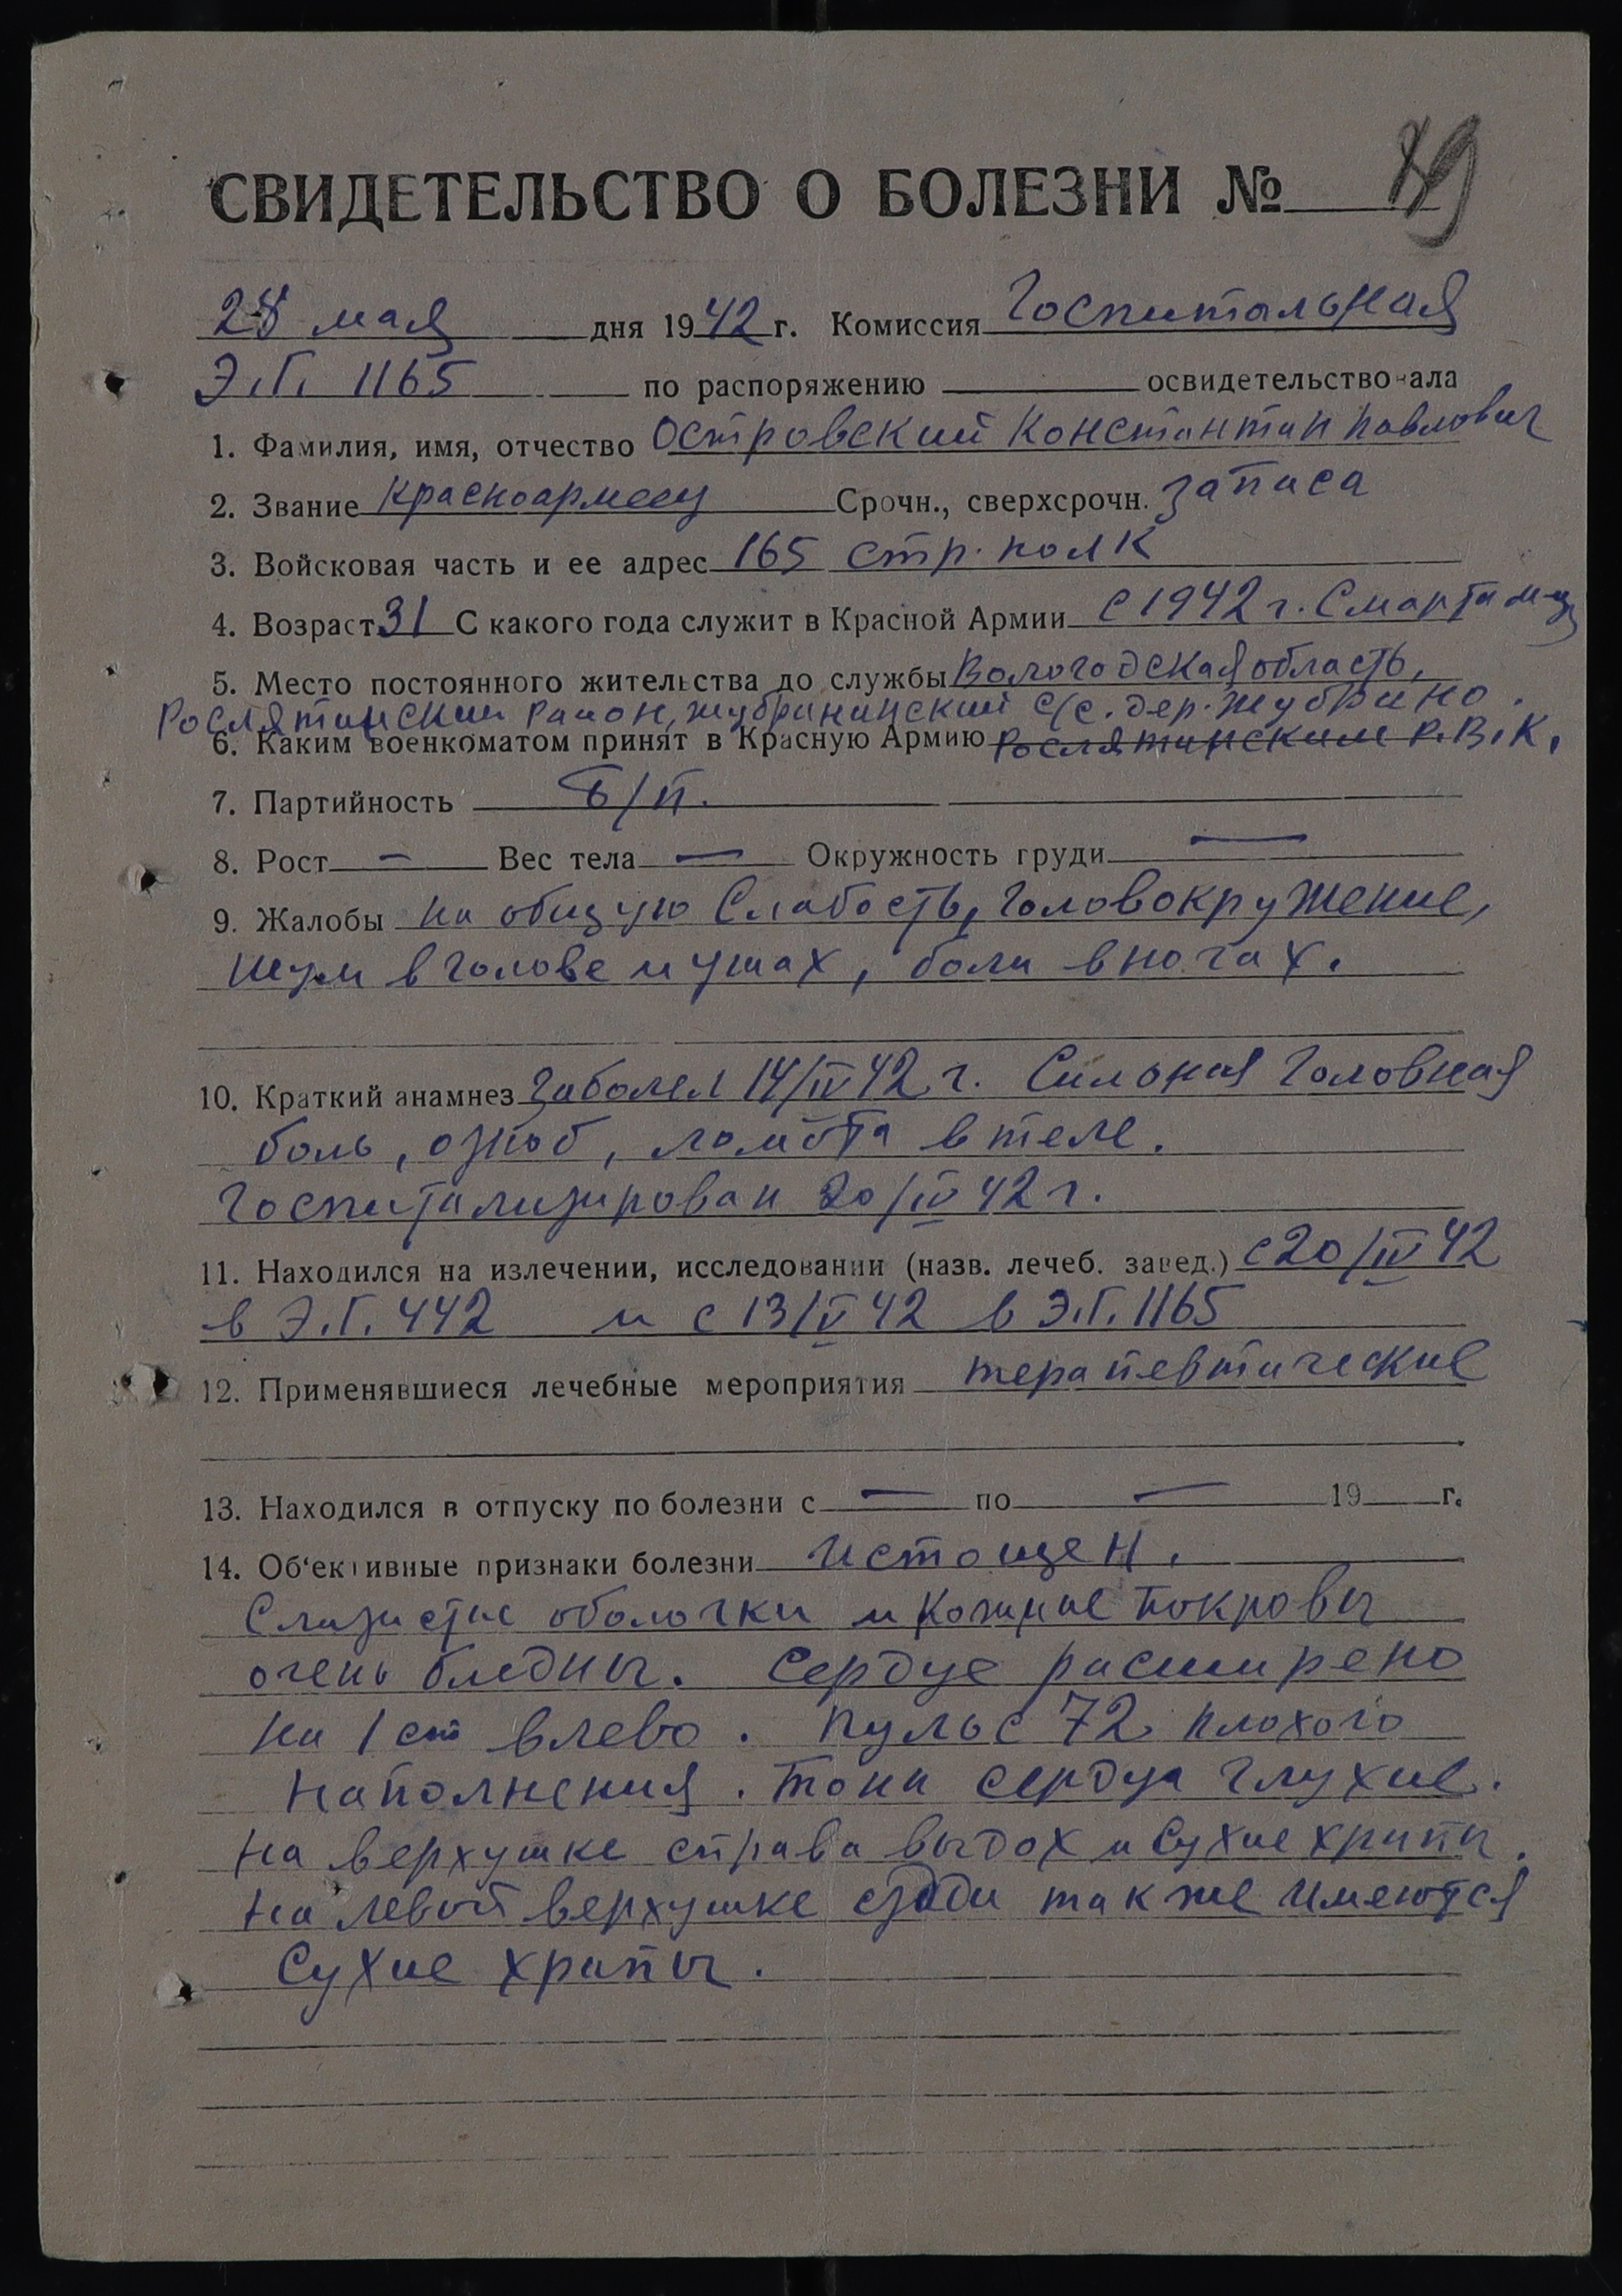 СВИДЕТЕЛЬСТВО О БОЛЕЗНИ № 89
28 мая дня 1942 г. Комиссия Госпитальная
Э.Г. 1165 по распоряжению освидетельствовала
1. Фамилия, имя, отчество Островский Константин Павлович
2. Звание красноармеец Срочн., сверхсрочн. запаса
3. Войсковая часть и ее адрес 165 стр. полк
4. Возраст 31 С какого года служит в Красной Армии с 1942 г. с марта м-ц
5. Место постоянного жительства до службы Вологодская область,
Рослятинский район, Жубрининский с/с. дер. Жубрино.
6. Каким военкоматом принят в Красную Армию Рослятинским Р.В.К.
7. Партийность б/п.
8. Рост — Вес тела — Окружность груди —
9. Жалобы на общую слабость, головокружение,
шум в голове и ушах, боли в ногах.
10. Краткий анамнез Заболел 14/IV 42 г. Сильная головная
боль, озноб, ломота в теле.
Госпитализирован 20/IV 42 г.
11. Находился на излечении, исследовании (назв. лечеб. завед.) с 20/IV 42
в Э.Г. 442 и с 13/V 42 в Э.Г. 1165
12. Применявшиеся лечебные мероприятия терапевтические
13. Находился в отпуску по болезни с — по — 19 г.
14. Об'ективные признаки болезни Истощен.
Слизистые оболочки и кожные покровы
очень бледны. Сердце расширено
на 1 см влево. Пульс 72 плохого
наполнения. Тоны сердца глухие.
На верхушке справа выдох и сухие хрипы.
На левой верхушке сзади также имеются
сухие хрипы.